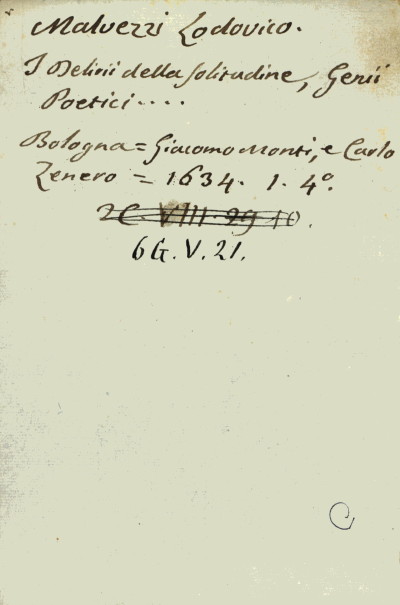 Malvezzi Lodovico.
I Delirii della solitudine, Genii
Poetici....
Bologna = Giacomo Monti, e Carlo
Zenero = 1634. 1. 4.º
2C. VIII. 29 10.
6G. V. 21.
C